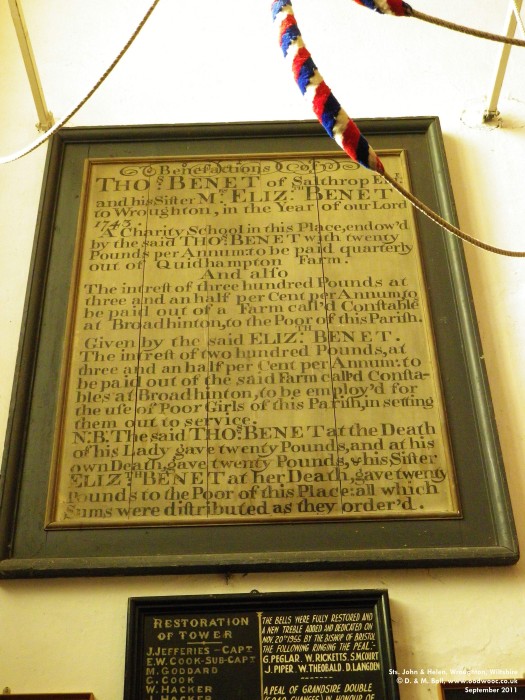 Benefactions of
THO.S BENET of Salthrop Esq.
and his Sister M.rs ELIZ.TH BENET
to Wroughton, in the Year of our Lord
1743.
A Charity School in this Place, endow'd
by the said THO.S BENET with twenty
Pounds per Annum: to be paid quarterly
out of Quidhampton Farm.
And also
The intreſt of three hundred Pounds at
three and an half per Cent per Annum: to
be paid out of a Farm call'd Conſtable
at Broadhinton, to the Poor of this Pariſh.
Given by the said ELIZ.TH BENET.
The intreſt of two hundred Pounds, at
three and an half per Cent per Annum: to
be paid out of the said Farm call'd Conſta-
bles at Broadhinton, to be employ'd for
the uſe of Poor Girls of this Pariſh, in setting
them out to service.
N.B. The said THO.S BENET at the Death
of his Lady gave twenty Pounds, and at his
own Death, gave twenty Pounds, & his Siſter
ELIZ.TH BENET at her Death, gave twenty
Pounds to the Poor of this Place: all which
Sums were diſtributed as they order'd.
RESTORATION
OF TOWER
J. JEFFERIES - CAPT
E.W. COOK - SUB-CAPT
M. GODDARD
G. COOK
W. HACKER
J. HACKER
THE BELLS WERE FULLY RESTORED AND
A NEW TREBLE ADDED AND DEDICATED ON
NOV. 20TH 1955 BY THE BISHOP OF BRISTOL
THE FOLLOWING RINGING THE PEAL:-
G. PEGLAR. W. RICKETTS. S. MCOURT
J. PIPER. W. THEOBALD. D. LANGDON
A PEAL OF GRANDSIRE DOUBLE
(5040 CHANGES) IN HONOUR OF
Sts. John & Helen, Wroughton, Wiltshire
© D. & M. Ball, www.oodwooc.co.uk
September 2011